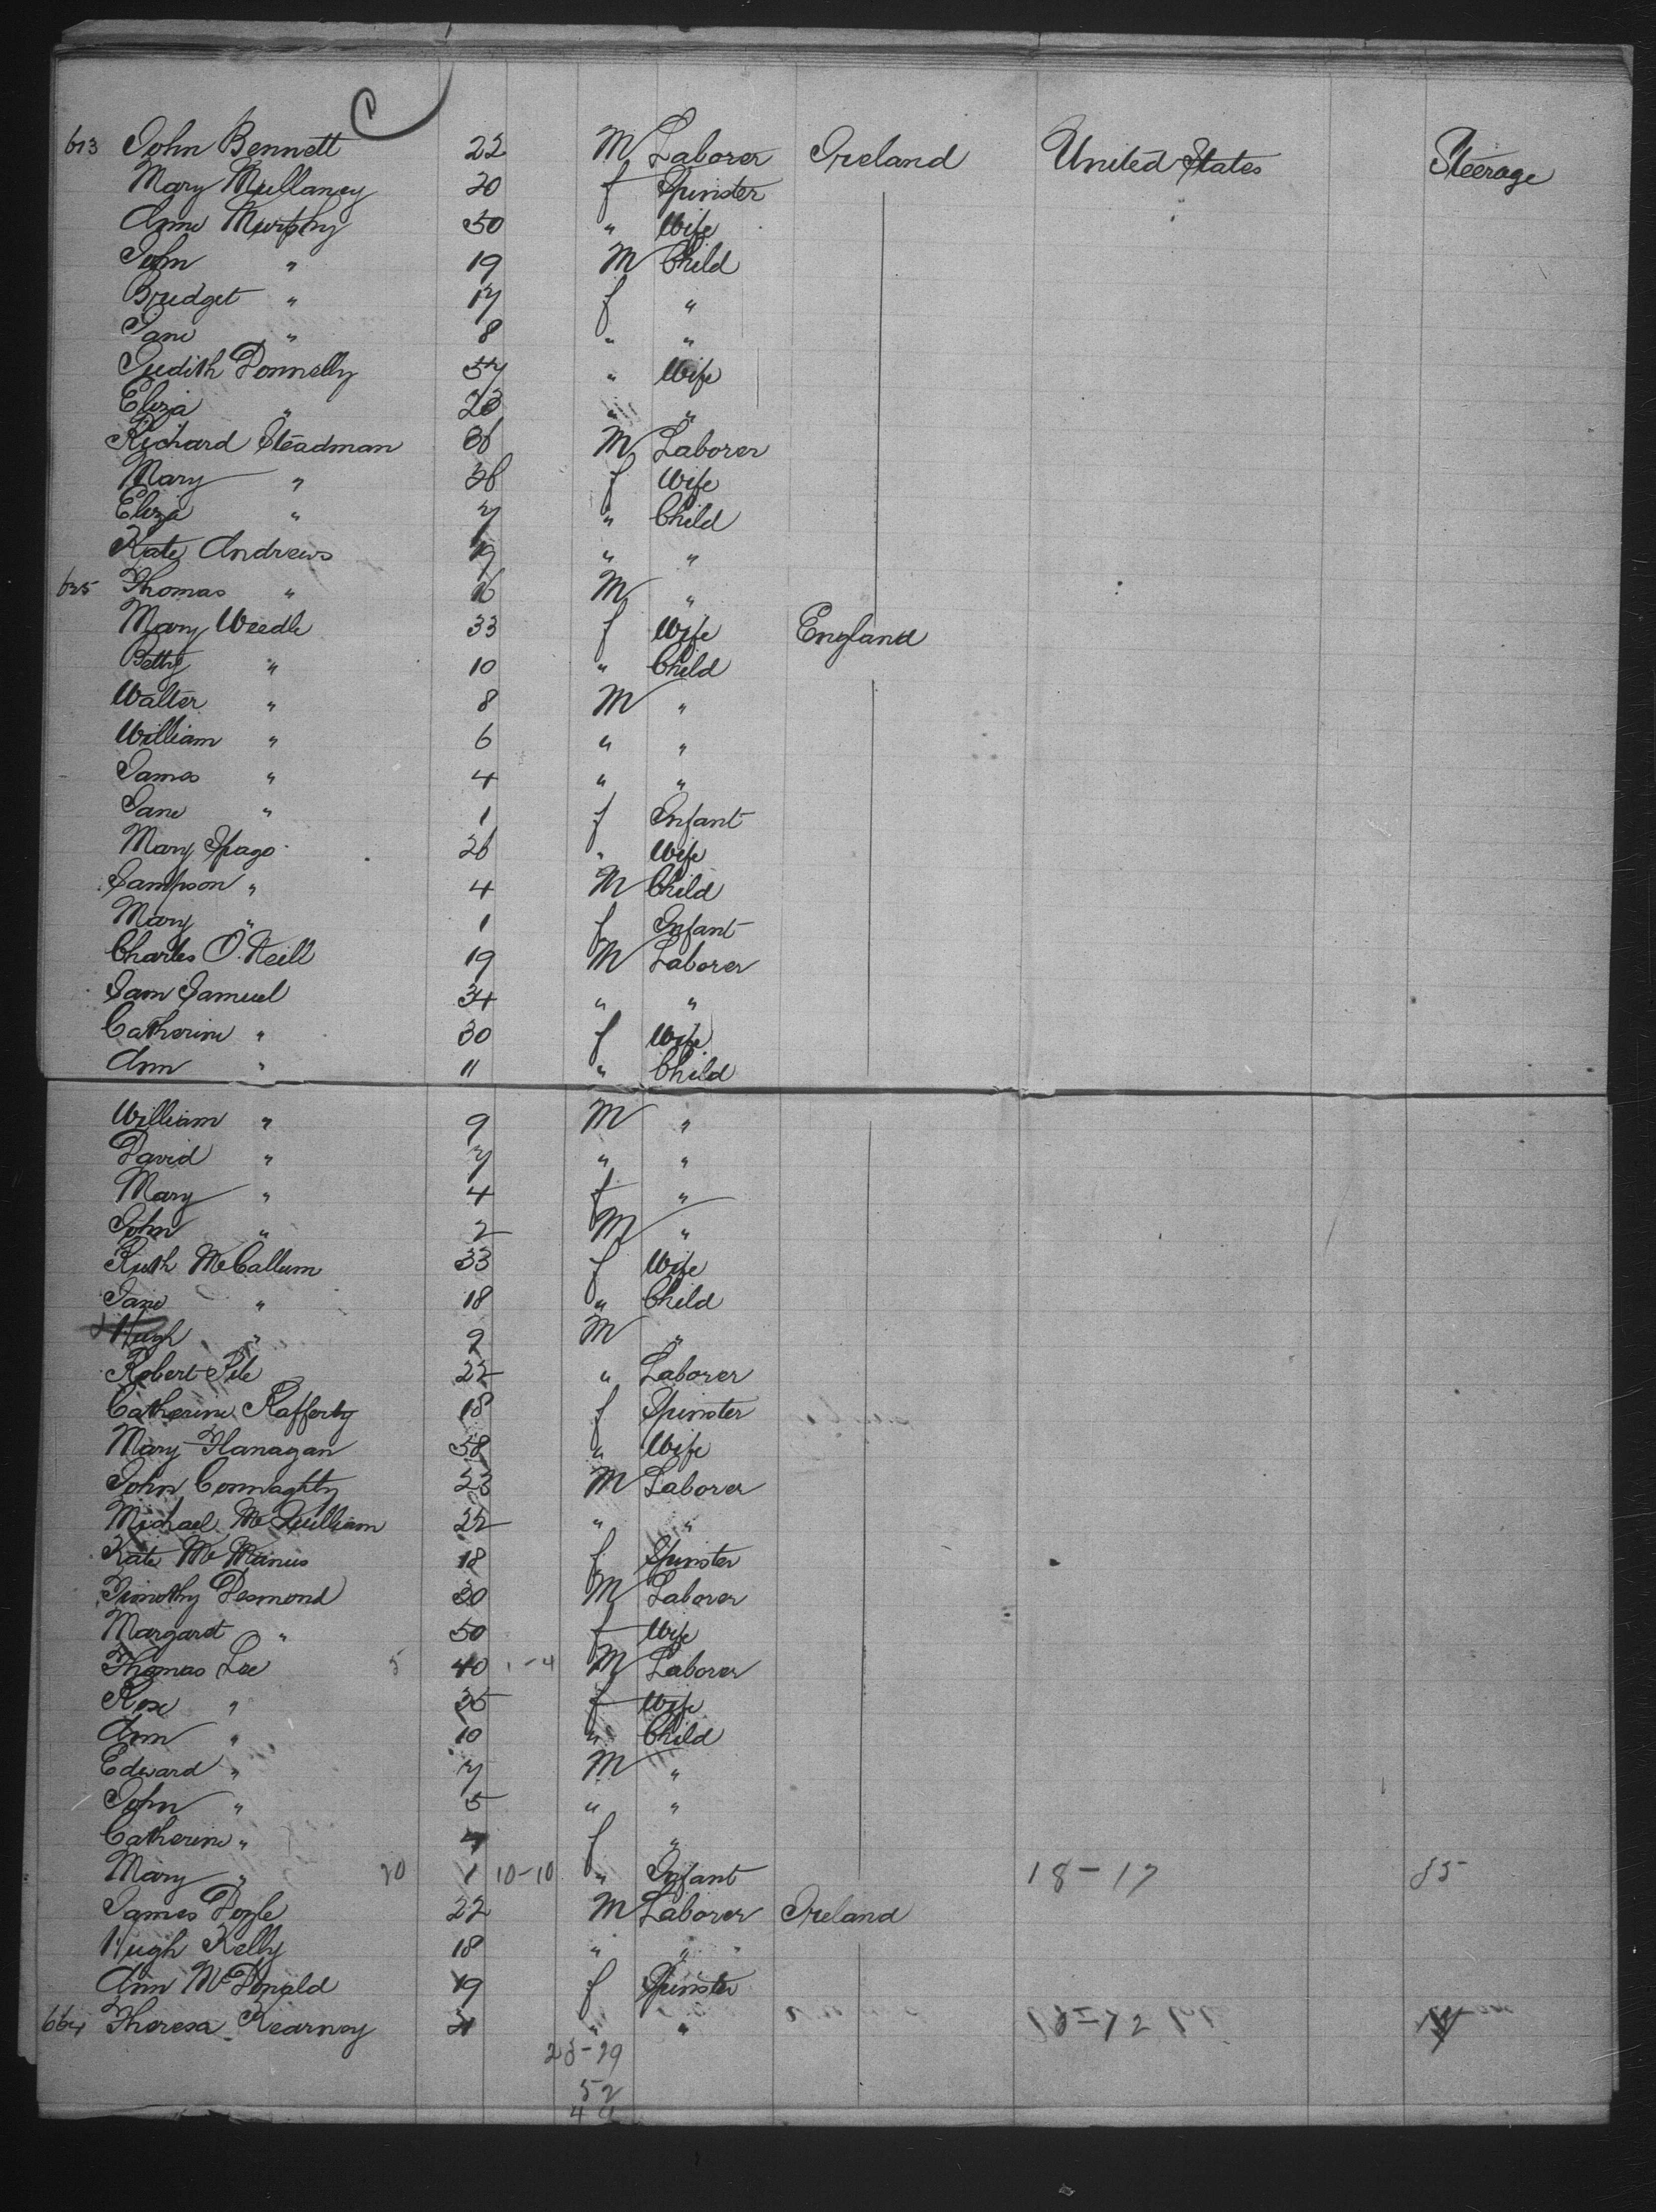 613 John Bennett 22 M Laborer Ireland United States Steerage
Mary Mullaney 20 f Spinster
Ann Murphy 50 " Wife
John " 19 M Child
Bridget " 17 f "
Jane " 8 " "
Judith Donnelly 57 " Wife
Eliza " " "
Richard Steadman 36 M Laborer
Mary " 36 f Wife
Eliza " 7 " Child
Kate Andrews 19 " "
625 Thomas " 16 M "
Mary Weedle 33 f Wife England
Betty " 10 " Child
Walter " 8 M "
William " 6 " "
James " 4 " "
Jane " 1 f Infant
Mary Spago 26 " Wife
Sampson " 4 M Child
Mary " 1 f Infant
Charles O'Neill 19 M Laborer
Sam Samuel 34 " "
Catherine " 30 f Wife
Ann " 11 " Child
William " 9 M "
David " 7 " "
Mary " 4 f "
John " 2 M "
Ruth McCallum 33 f Wife
Jane " 18 " Child
Hugh " 9 M "
Robert Pile 22 " Laborer
Catherine Rafferty 18 f Spinster
Mary Flanagan 58 " Wife
John Connaghty 23 M Laborer
Michael McQuilliam 22 " "
Kate McManus 18 f Spinster
Timothy Desmond 30 M Laborer
Margaret " 50 f Wife
Thomas Lee 5 40 1-4 M Laborer
Rose " 35 f Wife
Ann " 10 " Child
Edward " 7 M "
John " 5 " "
Catherine " 4 f "
Mary " 20 1 10-10 " Infant 18-17 85
James Doyle 22 M Laborer Ireland
Hugh Kelly 18 " "
Ann McDonald 19 f Spinster
664 Theresa Kearney 21 " "
28-29
52